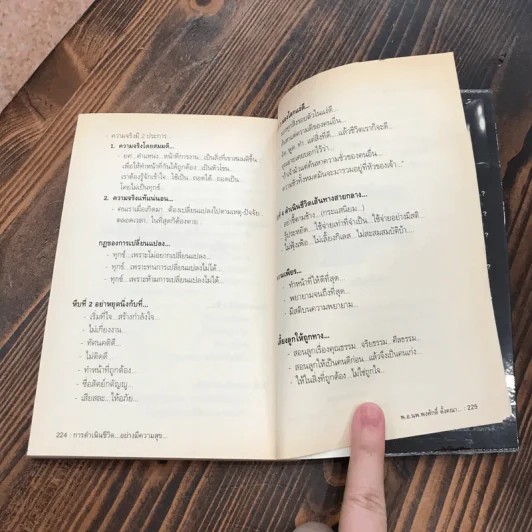 - ความจริงมี 2 ประการ
1. ความจริงโดยสมมติ...
- ยศ...ตำแหน่ง...หน้าที่การงาน...เป็นสิ่งที่เขาสมมติขึ้น...
เพื่อให้ทำหน้าที่กันได้ถูกต้อง...เป็นหัวโขน
เราต้องรู้จักเข้าใจ...ใช้เป็น...ถอดได้...ถอดเป็น
โดยไม่เป็นทุกข์...
2. ความจริงแท้แน่นอน...
- คนเราเมื่อเกิดมา ต้องเปลี่ยนแปลงไปตามเหตุ-ปัจจัย
ตลอดเวลา...ในที่สุดก็ต้องตาย
กฎของการเปลี่ยนแปลง...
- ทุกข์...เพราะไม่อยากเปลี่ยนแปลง...
- ทุกข์...เพราะทนการเปลี่ยนแปลงไม่ได้...
- ทุกข์...เพราะห้ามการเปลี่ยนแปลงไม่ได้...
หีบที่ 2 อย่าหยุดนิ่งกับที่...
- เริ่มที่ใจ...สร้างกำลังใจ...
- ไม่เกี่ยงงาน...
- ทัศนคติดี...
- ไม่ติดดี...
- ทำหน้าที่ถูกต้อง...
- ซื่อสัตย์กตัญญู...
- เสียสละ...ให้อภัย...
224 : การดำเนินชีวิต...อย่างมีความสุข...
มองโลกแง่ดี...
ของคนอื่น...
แล้วชีวิตเราก็จะดี...
ดำเนินชีวิตเส้นทางสายกลาง...
(กระแสนิยม...)
รู้ประหยัด...ใช้จ่ายเท่าที่จำเป็น...ใช้จ่ายอย่างมีสติ...
ไม่ฟุ้งเฟ้อ...ไม่เลี้ยงกิเลส...ไม่สะสมสมบัติบ้า...
- ทำหน้าที่ให้ดีที่สุด...
- พยายามจนถึงที่สุด...
- มีสติบนความพยายาม...
เลี้ยงลูกให้ถูกทาง...
- สอนลูกเรื่องคุณธรรม...จริยธรรม...ศีลธรรม...
- สอนลูกให้เป็นคนดีก่อน...แล้วจึงเป็นคนเก่ง...
- ให้ในสิ่งที่ถูกต้อง...ไม่ใช่ถูกใจ...
พ.อ.นพ.พงศักดิ์ ตั้งคณา... : 225